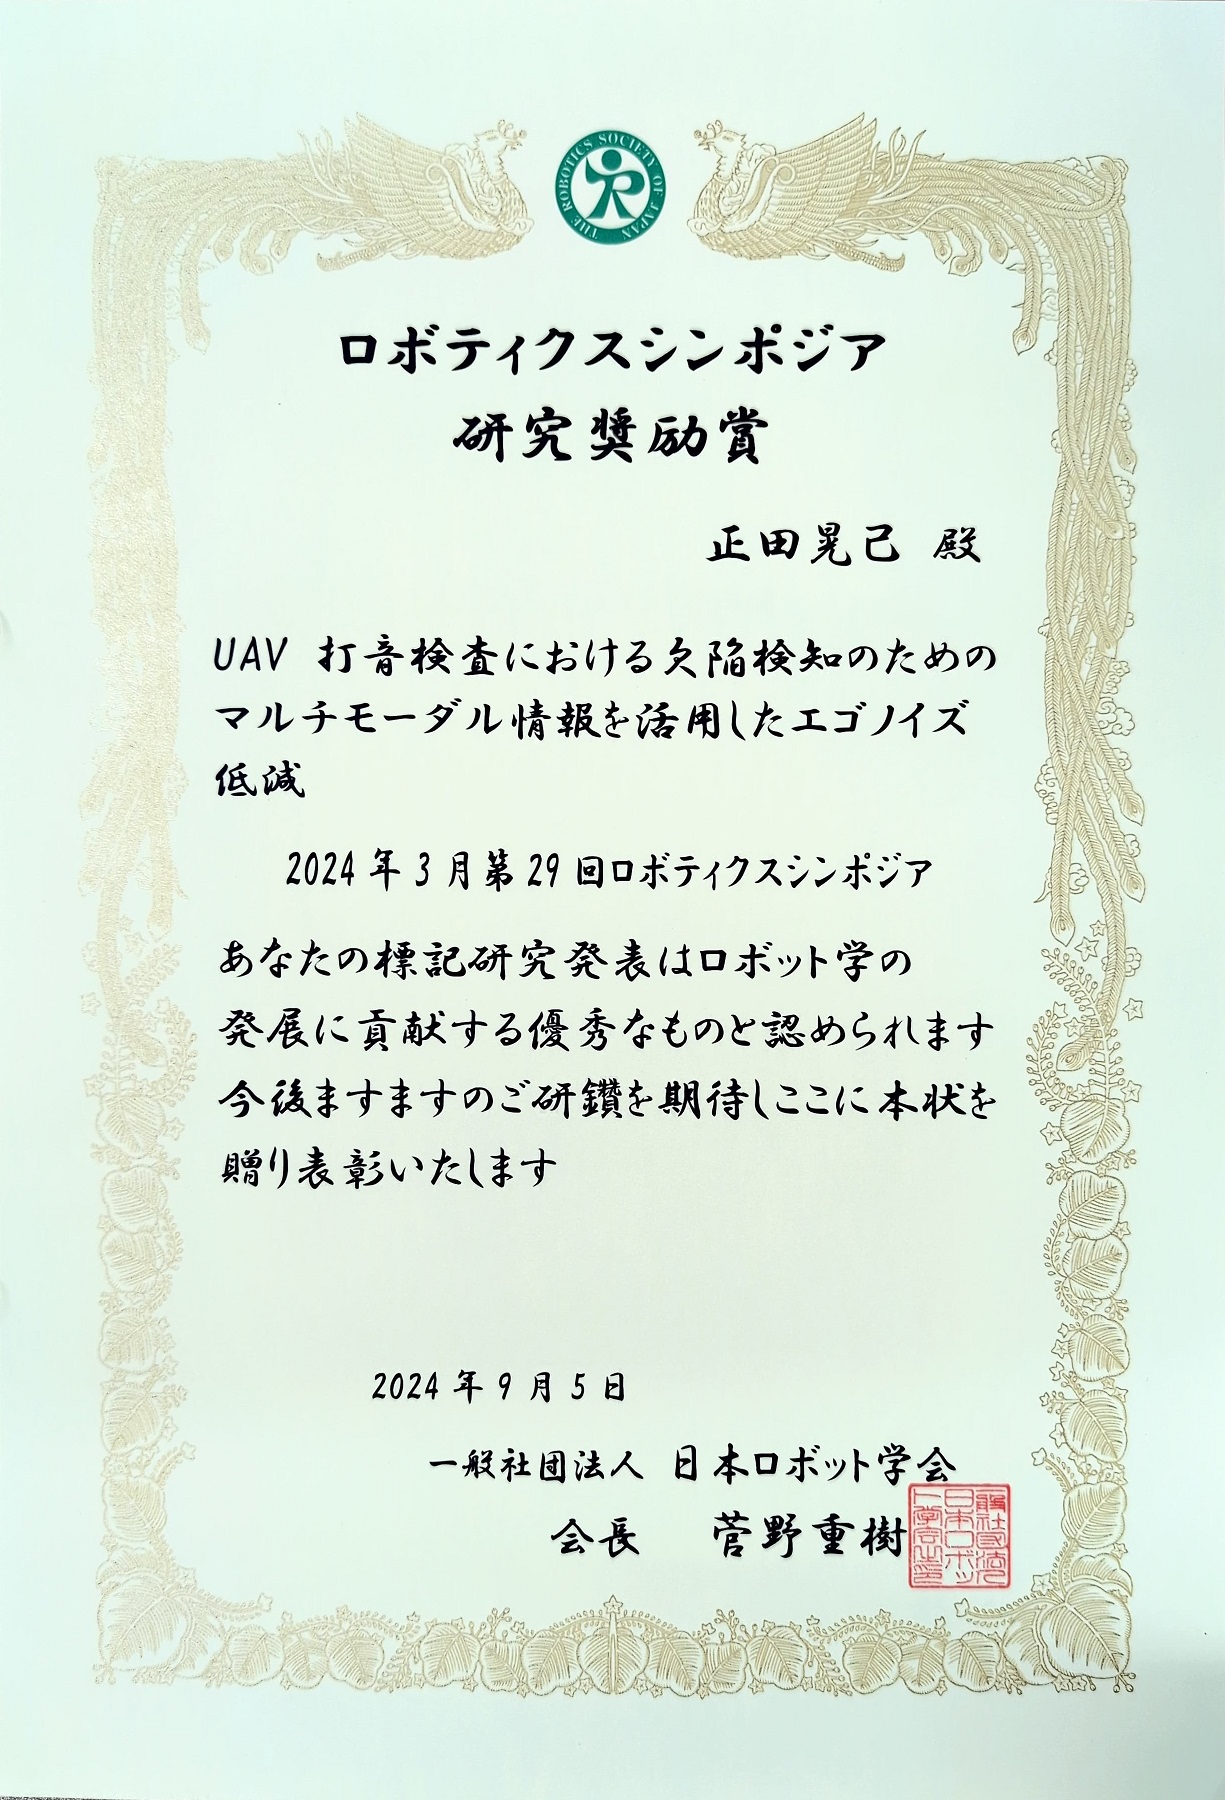 THE ROBOTICS SOCIETY OF JAPAN
ロボティクスシンポジア
研究奨励賞
正田晃己 殿
UAV 打音検査における欠陥検知のための
マルチモーダル情報を活用したエゴノイズ
低減
2024年3月第29回ロボティクスシンポジア
あなたの標記研究発表はロボット学の
発展に貢献する優秀なものと認められます
今後ますますのご研鑽を期待しここに本状を
贈り表彰いたします
2024年9月5日
一般社団法人 日本ロボット学会
会長 菅野重樹